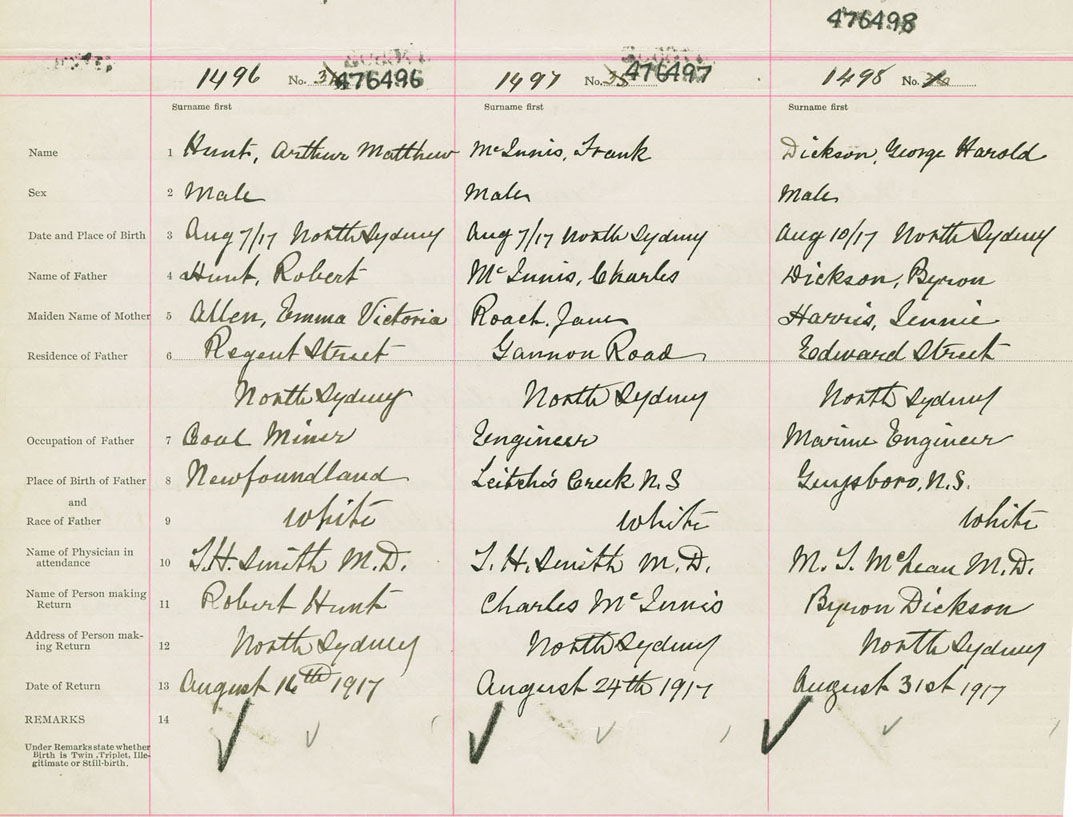 476498
1496 No. 476496 1497 No. 35 476497 1498 No.
Surname first Surname first Surname first
Name 1 Hunt, Arthur Matthew McInnis, Frank Dickson, George Harold
Sex 2 Male Male Male
Date and Place of Birth 3 Aug 7/17 North Sydney Aug 7/17 North Sydney Aug 10/17 North Sydney
Name of Father 4 Hunt, Robert McInnis, Charles Dickson, Byron
Maiden Name of Mother 5 Allen, Emma Victoria Roach, Jane Harris, Jennie
Residence of Father 6 Regent Street Gannon Road Edward Street
North Sydney North Sydney North Sydney
Occupation of Father 7 Coal Miner Engineer Marine Engineer
Place of Birth of Father 8 Newfoundland Leitch's Creek N.S Guysboro, N.S.
and
Race of Father 9 White White White
Name of Physician in
attendance 10 T.H. Smith M.D. T. H. Smith M.D. M. T. McLean M.D.
Name of Person making
Return 11 Robert Hunt Charles McInnis Byron Dickson
Address of Person mak-
ing Return 12 North Sydney North Sydney North Sydney
Date of Return 13 August 16th 1917 August 24th 1917 August 31st 1917
REMARKS 14
Under Remarks state whether
Birth is Twin, Triplet, Ille-
gitimate or Still-birth.